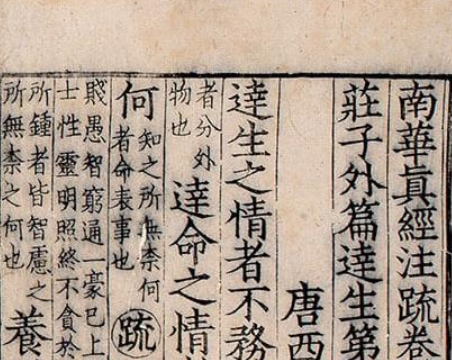 南華眞經注疏卷
莊子外篇達生第
唐西
達生之情者不務
者分外
物也
達命之情
何
知之所無柰何
者命表事也
疏
賤愚智窮通一豪已上
士性靈明照終不貪於
所鍾者皆智慮之
所無柰之何也
養